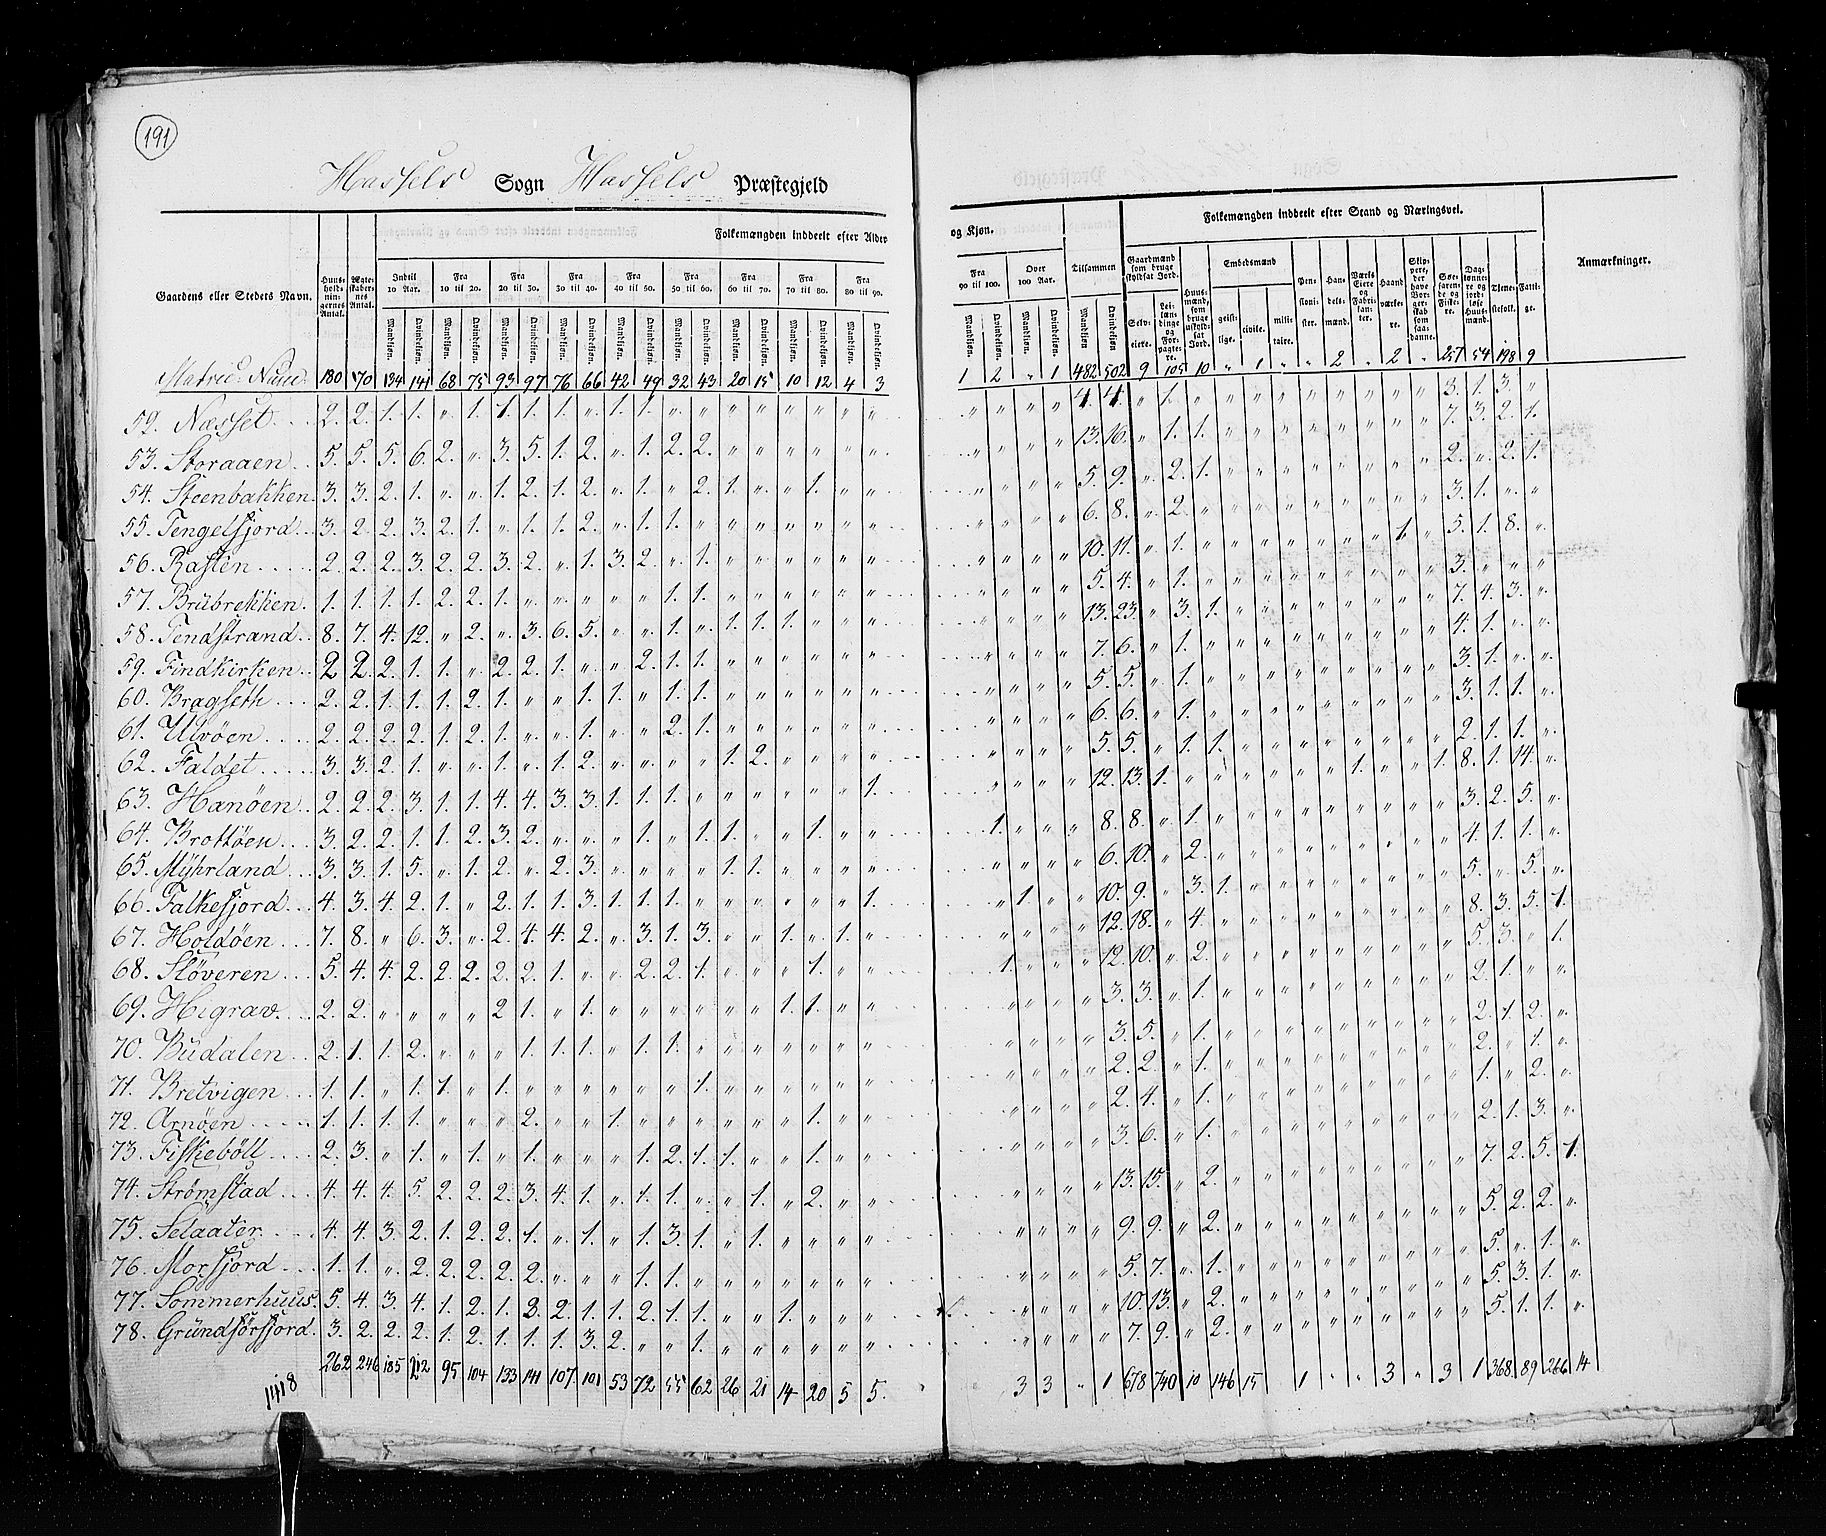 191
Hassels Sogn Hassels Præstegjeld
Folkemængden inddeelt efter Alder og Kjøn. Folkemængden inddeelt efter Stand og Næringsvei.
Gaardens eller Stedets Navn. Huusholdningernes Antal. Ægteskabernes Antal. Indtil 10 Aar. Fra 10 til 20. Fra 20 til 30. Fra 30 til 40. Fra 40 til 50. Fra 50 til 60. Fra 60 til 70. Fra 70 til 80. Fra 80 til 90. Fra 90 til 100. Over 100 Aar. Tilsammen Gaardmænd som bruge skyldsat Jord. Embedsmænd Anmærkninger.
Mandkjøn. Qvindekjøn. Selveiere. Leilændinge og Forpagtere. Huusmænd, som bruge uskyldsat Jord. geistlige. civile. militaire. Pensionister. Handelsmænd. Værks Eiere og Fabrikanter. Haandværkere. Skippere, der have Borgerskab som saadanne. Søefarende og Fiskere. Dagslønnere og jordløse Huusmænd. Tjenestefolk. Fattige.
180 70 134 141 68 75 93 97 76 66 42 49 32 43 20 15 10 12 4 3 1 2 " 1 482 502 9 105 10 " 1 " " 2 " 2 " 257 54 198 9
52. Næsset 2. 2. 1. 1. " 1. 1. 1. 1. " 1. 1. " " " " " " " " " " " " 4. 4. " 1. " " " " " " " " " 3. 1. 3. "
53. Storaaen 5. 5. 5. 6. 2. " 3. 5. 1. 2. " 1. 2. 2. " " " " " " " " " " 13. 16. " 1. 1. " " " " " " " " 7. 3. 2. 1.
54. Steenbakken 3. 3. 2. 1. " " 1. 2. 1. 2. " 1. " 2. 1. " " 1. " " " " " " 5. 9. " 2. 1. " " " " " " " " 2. " 2. 1.
55. Tengelfjord 3. 2. 2. 3. 2. 1. " 1. 1. 2. " 1. 1. " " " " " " " " " " " 6. 8. " 2. " " " " " " " " " 3. 1. " "
56. Rasten 2. 2. 2. 3. 2. 2. 3. 2. " 1. 3. 2. " 1. " " " " " " " " " " 10. 11. " 1. " " " " " " " 1 " 5. 1. 8. "
57. Brübrekken 1. 1. 1. 1. 2. 2. 1. " " " " " 1. 1. " " " " " " " " " " 5. 4. " 1. " " " " " " " " " 3. " " "
58. Tendstrand 8. 7. 4. 12. " 2. " 3. 6. 5. " " 1. " 1. 1. 1. " " " " " " " 13. 23. " 3. 1. " " " " " " " " 7. 4. 3. "
59. Findkirken 2 2. 2. 1. 1. " 2. 2. 1. " " 2. 1. 1. " " " " " " " " " " 7. 6. " 1. " " " " " " " " " 4. 1. " "
60. Bragseth 2. 2. 1. 1. 1. 2. 1. " " 1. 1. " 1. 1. " " " " " " " " " " 5. 5. " 1. " " " " " " " " " 3. 1. " "
61. Ulvöen 2. 2. 2. 2. 1. 2. 1. " " 1. " " 2. 1. " " " " " " " " " " 6. 6. " 1. " " " " " " " " " 3. 1. 1. "
62. Faldet 3. 3. 2. 1. " " 1. " 1. 2. " " " " 1. 2. " " " " " " " " 5. 5. " 1. 1. " " " " " " " " 2. 1. 1. "
63. Hanöen 2. 2. 2. 3. 1. 1. 4. 4. 3. 3. 1. 1. 1. " " " " " " 1. " " " " 12. 13. 1. " " " " " " " 1. " " 1. 8. 1. 14. "
64. Brottöen 3. 2. 2. 1. 1. 2. 3. 2. " " " 1. " 1. 1. " " 1. " " 1. " " " 8. 8. " 1. " " " " " " " " " 3. 2. 5. "
65. Mÿhrland 3. 3. 1. 5. " 1. 2. " 2. 3. " " " " 1. 1. " " " " " " " " 6. 10. " 2. " " " " " " " " " 4. 1. 1. "
66. Falkefjord 4. 3. 4. 2. 1. " 2. 1. 1. 3. 1. 1. 1. " " " " " " 1. " 1 " " 10. 9. " 3. 1. " " " " " " " " 5. " 5. "
67. Holdöen 7. 8. " 6. 3. " 2. 4. 4. 2. " 3. 1. 3. " " 1. " 1. " " " " " 12. 18. " 4. " " " " " " " " " 8. 3. 5. 1
68. Slöveren 5. 4. 4. 2. 2. 2. 2. 2. 1. " " 2. 2. 1. " " " 1. " " 1. " " " 12. 10. " 2. " " " " " " " " " 5. 3. " 1.
69. Higrav 2. 2. " " " " 2 1. " 1. " " " " " " 1. 1. " " " " " " 3. 3. " 1. " " " " " " " " " 2. 1. " "
70. Büdalen 2. 1. 1. 2. " " " 1. 1. 1. " 1. 1. " " " " " " " " " " " 3. 5. " 1. " " " " " " " " " 2. 1. 2. "
71. Bretvigen 1. 1. " 1. 1. " 1. " " " " " " 1. " " " " " " " " " " 2. 2. " 1. " " " " " " " " " 2. " 1. "
72. Arnöen 1. 1. 1. 1. " " " 2. " " 1. " " " " " " 1. " " " " " " 2. 4. " 1. " " " " " " " " " 1. " 2. "
73. Fiskeböll 2. 3. " 1. " 1. " 1. " " " 1. 2. 1. 1. " " 1. " " " " " " 3. 6. " 1. " " " " " " " " " 2. 1. 3. "
74. Strömstad 4. 4. 4. 5. 2. 2. 2. 3. 4. 1. " 1. 1. " " 1. " 2. " " " " " " 13. 15. " 2. " " " " " " " " " 7. 2. 5. 1
75. Selaater 4. 4. 3. 2. 1. 2. 2. 1. " 1. " 1. 3. 1. " 1. " " " " " " " " 9. 9. " 2. " " " " " " " " " 5. 2. 2. "
76. Morfjord 1. 1. " 2. 2. 2. 2. 2. " " " 1. 1. " " " " " " " " " " " 5. 7. " 1. " " " " " " " " " 5. " 1. "
77. Sommerhuus. 5. 4. 3. 4. 1. 2. 1. 3. 2. 1. 1. 2. 1. 1. " " 1. " " " " " " " 10. 13. " 2. " " " " " " " " " 5. 3. 1. "
78. Gründförfjord. 3. 2. 2. 2. 1. 2. 1. 1. 1. 3. 2. " " 1. " " " " " " " " " " 7. 9. " 2. " " " " " " " " " 5. 1. 1. "
1418 262 246 185 212 95 104 133 141 107 101 53 72 55 62 26 21 14 20 5 5. 3 3 " 1 678 740 10 146 15 1 " " 3 " 3 1 368 89 266 14